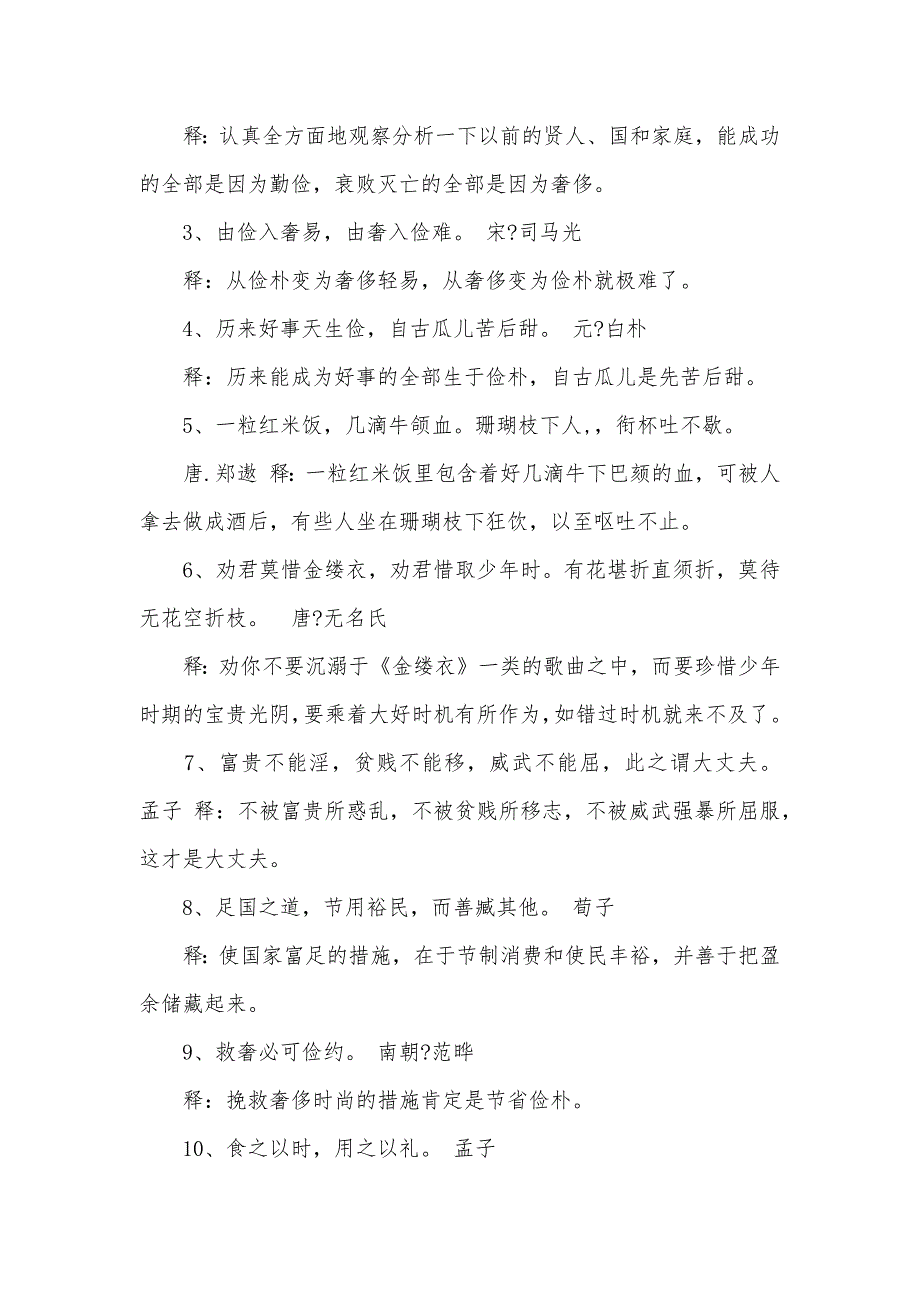 释：认真全方面地观察分析一下以前的贤人、国和家庭，能成功
的全部是因为勤俭，衰败灭亡的全部是因为奢侈。
3、由俭入奢易，由奢入俭难。 宋?司马光
释：从俭朴变为奢侈轻易，从奢侈变为俭朴就极难了。
4、历来好事天生俭，自古瓜儿苦后甜。 元?白朴
释：历来能成为好事的全部生于俭朴，自古瓜儿是先苦后甜。
5、一粒红米饭，几滴牛颌血。珊瑚枝下人,，衔杯吐不歇。
唐.郑遨 释：一粒红米饭里包含着好几滴牛下巴颏的血，可被人
拿去做成酒后，有些人坐在珊瑚枝下狂饮，以至呕吐不止。
6、劝君莫惜金缕衣，劝君惜取少年时。有花堪折直须折，莫待
无花空折枝。 唐?无名氏
释：劝你不要沉溺于《金缕衣》一类的歌曲之中，而要珍惜少年
时期的宝贵光阴,要乘着大好时机有所作为,如错过时机就来不及了。
7、富贵不能淫，贫贱不能移，威武不能屈，此之谓大丈夫。
孟子 释：不被富贵所惑乱，不被贫贱所移志，不被威武强暴所屈服，
这才是大丈夫。
8、足国之道，节用裕民，而善臧其他。 荀子
释：使国家富足的措施，在于节制消费和使民丰裕，并善于把盈
余储藏起来。
9、救奢必可俭约。 南朝?范晔
释：挽救奢侈时尚的措施肯定是节省俭朴。
10、食之以时，用之以礼。 孟子